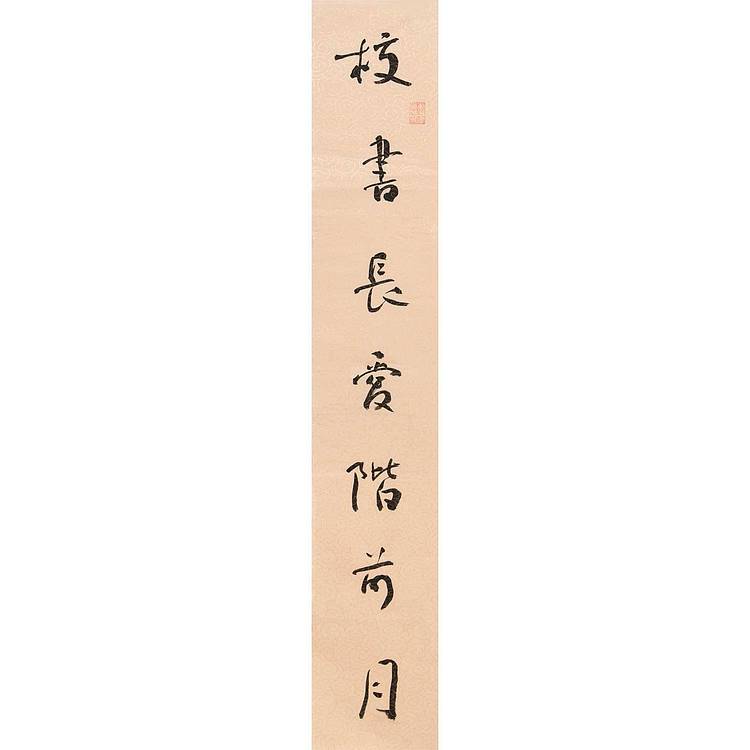 校書長愛階前月